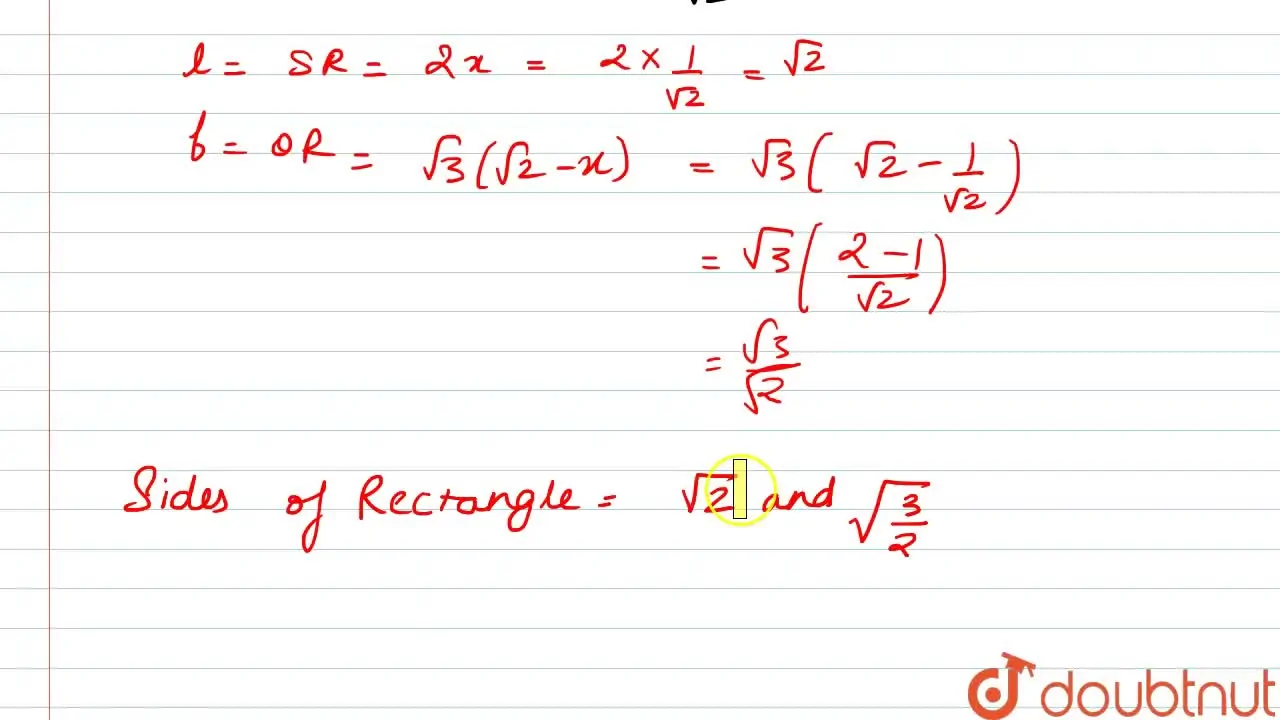 √2
l = SR = 2x = 2 × 1/√2 = √2
b = QR = √3(√2 - x) = √3(√2 - 1/√2)
= √3((2 - 1)/√2)
= √3/√2
Sides of Rectangle = √2 and √(3/2)
doubtnut